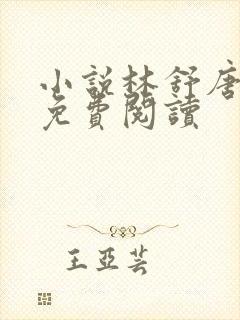 小說林舒唐
免費閱讀
王亞芸